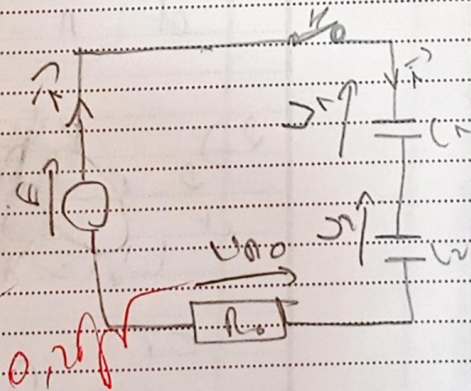 K
i
i
U1
C1
E
U2
C2
UR0
R0
0,25